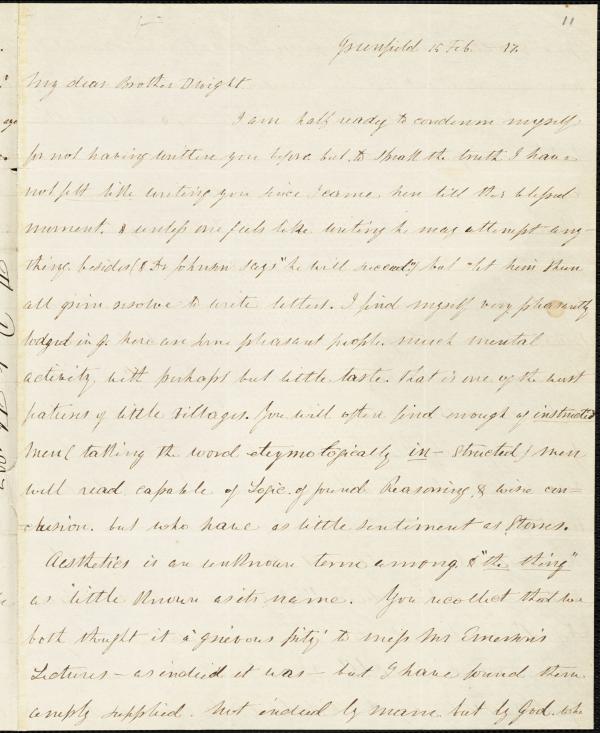 11
Greenfield 15 Feb. — 37.
My dear Brother Dwight.
I am half ready to condemn myself
for not having written you before but, to speak the truth I have
not felt like writing you since I came here till this blessed
moment. & unless one feels like writing he may attempt any-
thing besides (& Dr Johnson says "he will succeed") but let him shun
all grim resolve to write letters. I find myself very pleasantly
lodged in G. here are some pleasant people. much mental
activity with perhaps but little taste. that is one of the worst
features of little villages. You will often find enough of instructed
men (taking the word etymologically in-structed) men
well read capable of Logic. of sound Reasoning, & wise con-
clusion. but who have as little sentiment as Stones.
Aesthetics is an unknown term among & "the thing"
as little known as its name. You recollect that we
both thought it a 'grievous pity' to miss Mr Emerson's
Lectures — as indeed it was — but I have found them
amply supplied. not indeed by man. but by God. who